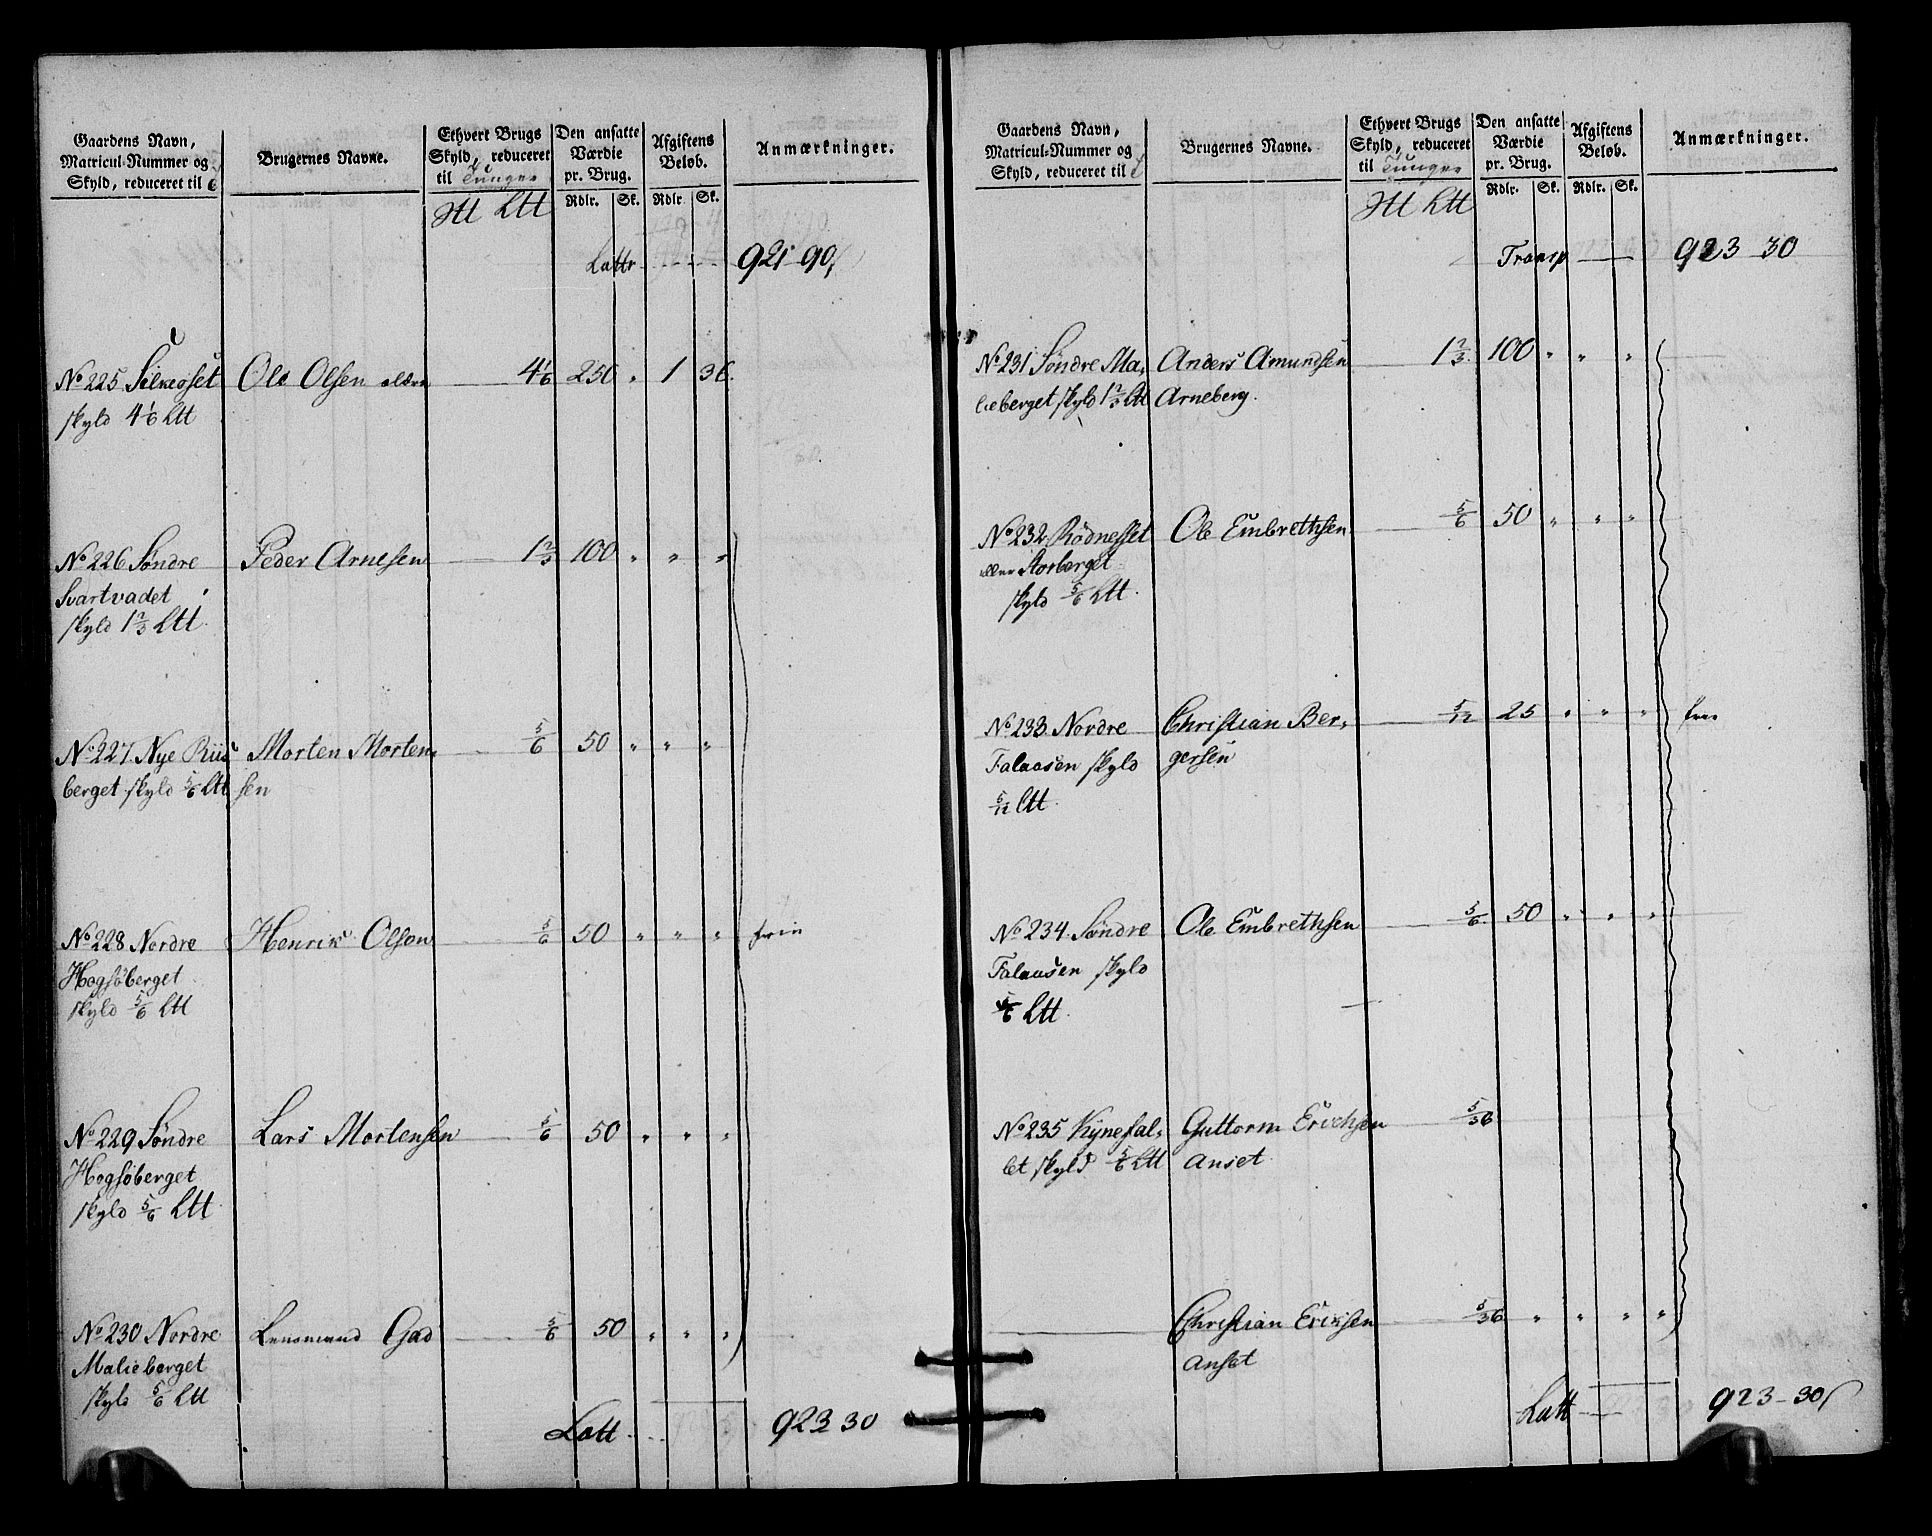 Gaardens Navn,
Matricul-Nummer og
Skyld, reduceret til
Brugernes Navne.
Ethvert Brugs
Skyld, reduceret
til Tunger
Den ansatte
Værdie
pr. Brug.
Rdlr. Sk.
Afgiftens
Beløb.
Rdlr Sk.
Anmærkninger.
Latr 921-90
No 225 Silkeøset Ole Olsen 4 1/6 250 " 1 36.
skyld 4 1/6 Ltt
No 226 Søndre Peder Arnesen 1 2/3 100 " " "
Svartvadet
skyld 1 2/3 Ltt.
No 227. Nye Riis Morten Morten 5/6 50 " " "
berget skyld 5/6 Ltt sen
No 228 Nordre Henrik Olson 5/6 50 " " " frie
Hogsøberget
skyld 5/6 Ltt
No 229 Søndre Lars Mortensen 5/6 50 " " "
Hogsøberget
skyld 5/6 Ltt
No 230 Nordre Lensmand Gad 5/6 50 " " "
Malieberget
skyld 5/6 Ltt
Latt 923 30
Gaardens Navn,
Matricul-Nummer og
Skyld, reduceret til
Brugernes Navne.
Ethvert Brugs
Skyld, reduceret
til Tunger
Den ansatte
Værdie
pr. Brug.
Rdlr. Sk.
Afgiftens
Beløb.
Rdlr. Sk.
Anmærkninger.
Transp 923 30
No 231 Søndre Ma- Anders Amundsen 1 2/3 100 " " "
lieberget skyld 1 2/3 Ltt Arneberg.
No 232 Rødnesset Ole Embrethsen 5/6 50 " " "
eller Storberget
skyld 5/6 Ltt.
No 233. Nordre Christian Ber- 5/12 25 " " " frie
Falaasen skyld gersen
5/12 Ltt.
No 234. Søndre Ole Embrethsen 5/6 50 " " "
Falaasen skyld
5/6 Ltt.
No 235 Kynefal- Guttorm Erichsen 5/36
let skyld 5/6 Ltt Anset
Christian Eriksen 5/36 " " " "
Anset
Latt 923-30